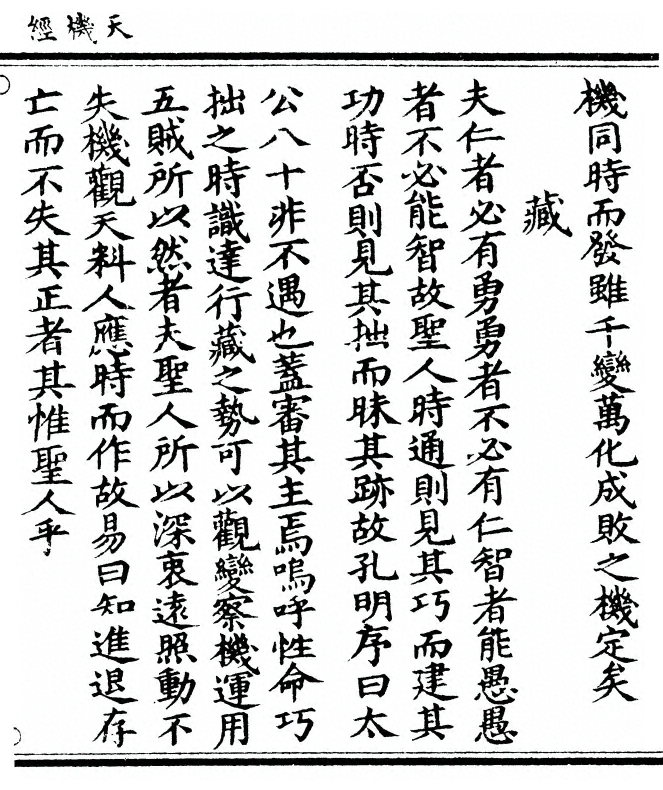 天機經
機同時而發雖千變萬化成敗之機定矣
藏
夫仁者必有勇勇者不必有仁智者能愚愚
者不必能智故聖人時通則見其巧而建其
功時否則見其拙而昧其跡故孔明序曰太
公八十非不遇也蓋審其主焉嗚呼性命巧
拙之時識達行藏之勢可以觀變察機運用
五賊所以然者夫聖人所以深衷遠照動不
失機觀天料人應時而作故易曰知進退存
亡而不失其正者其惟聖人乎